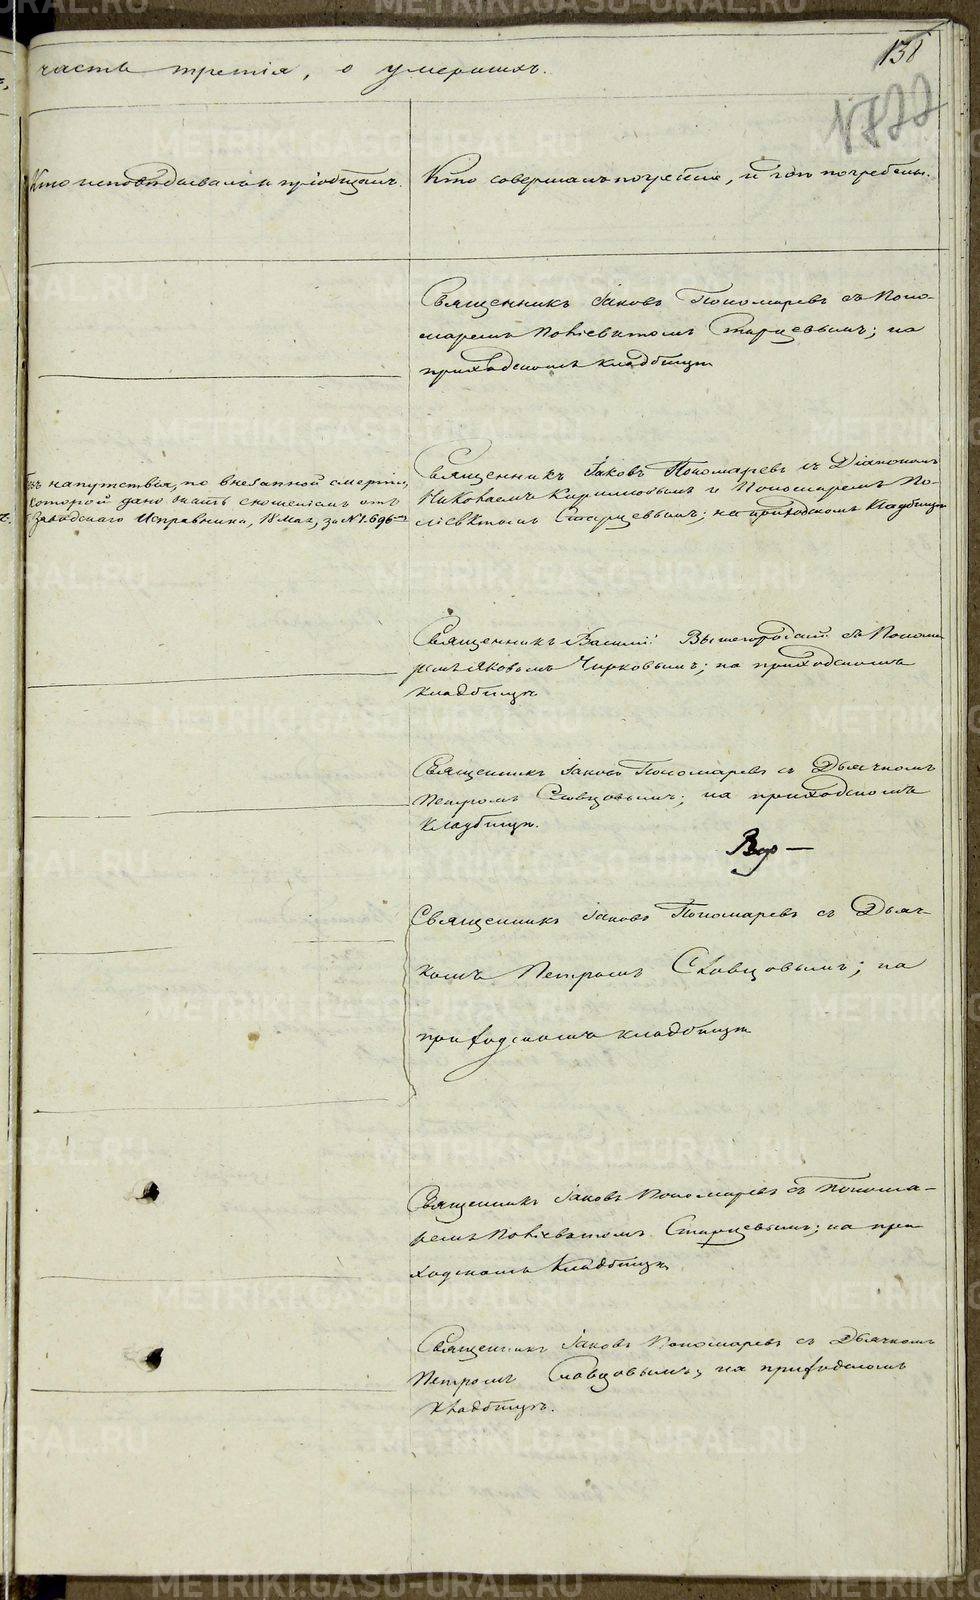 часть третія, о умершихъ.
138
Кто исповѣдывалъ и пріобщалъ.
Кто совершалъ погребеніе, и гдѣ погребены.
Священникъ Іаковъ Пономаревъ съ Поно-
маремъ Поліевктомъ Старцевымъ; на
приходскомъ кладбищѣ
Безъ напутствія, по внезапной смерти,
которой дано знать сношеніемъ отъ
Заводскаго Исправника, 18 Мая, за № 1.696-мъ
Священникъ Іаковъ Пономаревъ съ Діакономъ
Николаемъ Кирилловымъ и Пономаремъ По-
ліевктомъ Старцевымъ; на приходскомъ кладбищѣ
Священникъ Василій Вышегородскій съ Понома-
ремъ Яковомъ Чирковымъ; на приходскомъ
кладбищѣ
Священникъ Іаковъ Пономаревъ съ Дьячкомъ
Петромъ Словцовымъ; на приходскомъ
кладбищѣ.
Священникъ Іаковъ Пономаревъ съ Дьяч-
комъ Петромъ Словцовымъ; на
приходскомъ кладбищѣ
Священникъ Іаковъ Пономаревъ съ Понома-
ремъ Поліевктомъ Старцевымъ; на при-
ходскомъ кладбищѣ
Священникъ Іаковъ Пономаревъ съ Дьячкомъ
Петромъ Словцовымъ; на приходскомъ
кладбищѣ.
METRIKI.GASO-URAL.RU